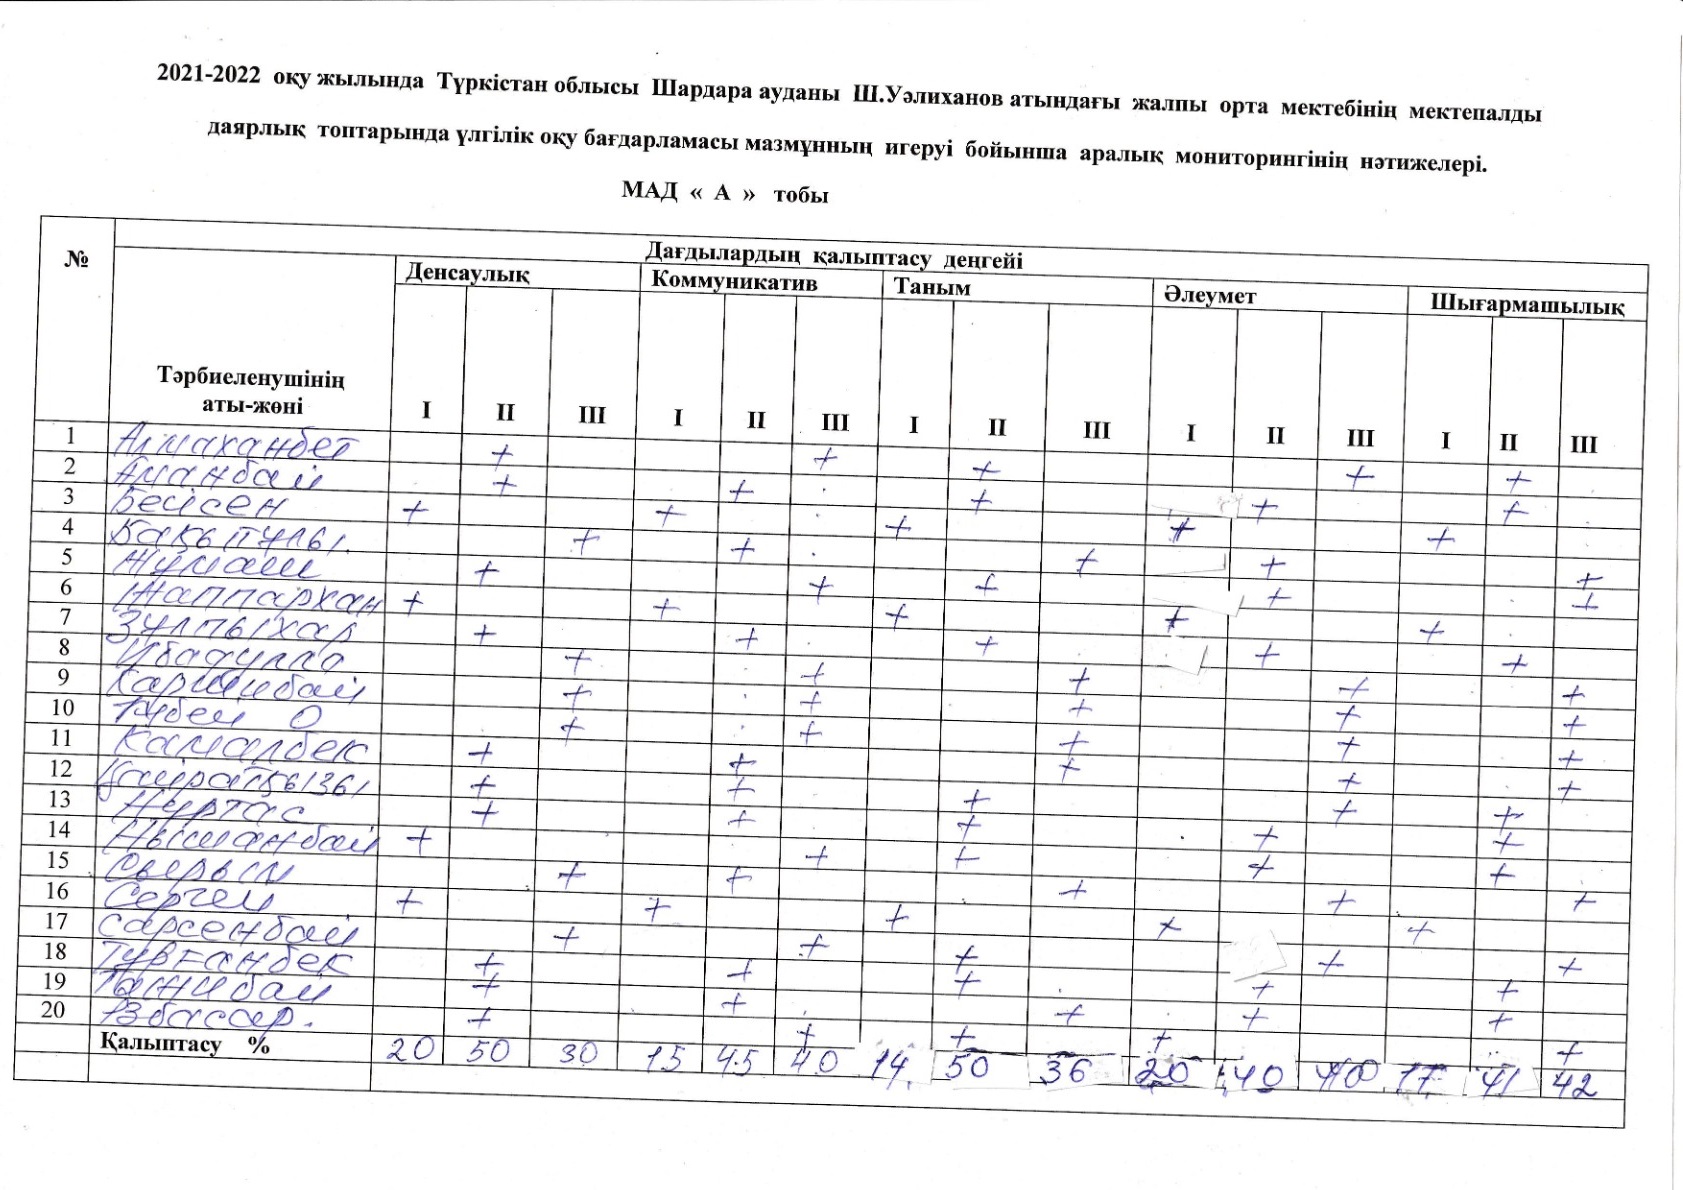 2021-2022 оқу жылында Түркістан облысы Шардара ауданы Ш.Уәлиханов атындағы жалпы орта мектебінің мектепалды
даярлық топтарында үлгілік оқу бағдарламасы мазмұнның игеруі бойынша аралық мониторингінің нәтижелері.
МАД « А » тобы
№ Дағдылардың қалыптасу деңгейі
Денсаулық Коммуникатив Таным Әлеумет Шығармашылық
Тәрбиеленушінің
аты-жөні
I II III I II III I II III I II III I II III
1 Алмаханбет + + + + +
2 Аманбай + + + + +
3 Бейсен + + + + +
4 Бақытұлы. + + + + +
5 Жұмаш + + + + +
6 Жаппархан + + + + +
7 Зулпыхар + + + + +
8 Ибадулла + + + + +
9 Каримбай + + + + +
10 + + + + +
11 Камалбек + + + + +
12 Қайратқызы + + + + +
13 Нұртас + + + + +
14 Нысанбай + + + + +
15 Сырым + + + + +
16 + + + + +
17 Сарсенбай + + + + +
18 Тұрғанбек + + + + +
19 Тәжибай + + + + +
20 + + + + +
Қалыптасу % 20 50 30 15 45 40 14 50 36 20 40 40 17 41 42